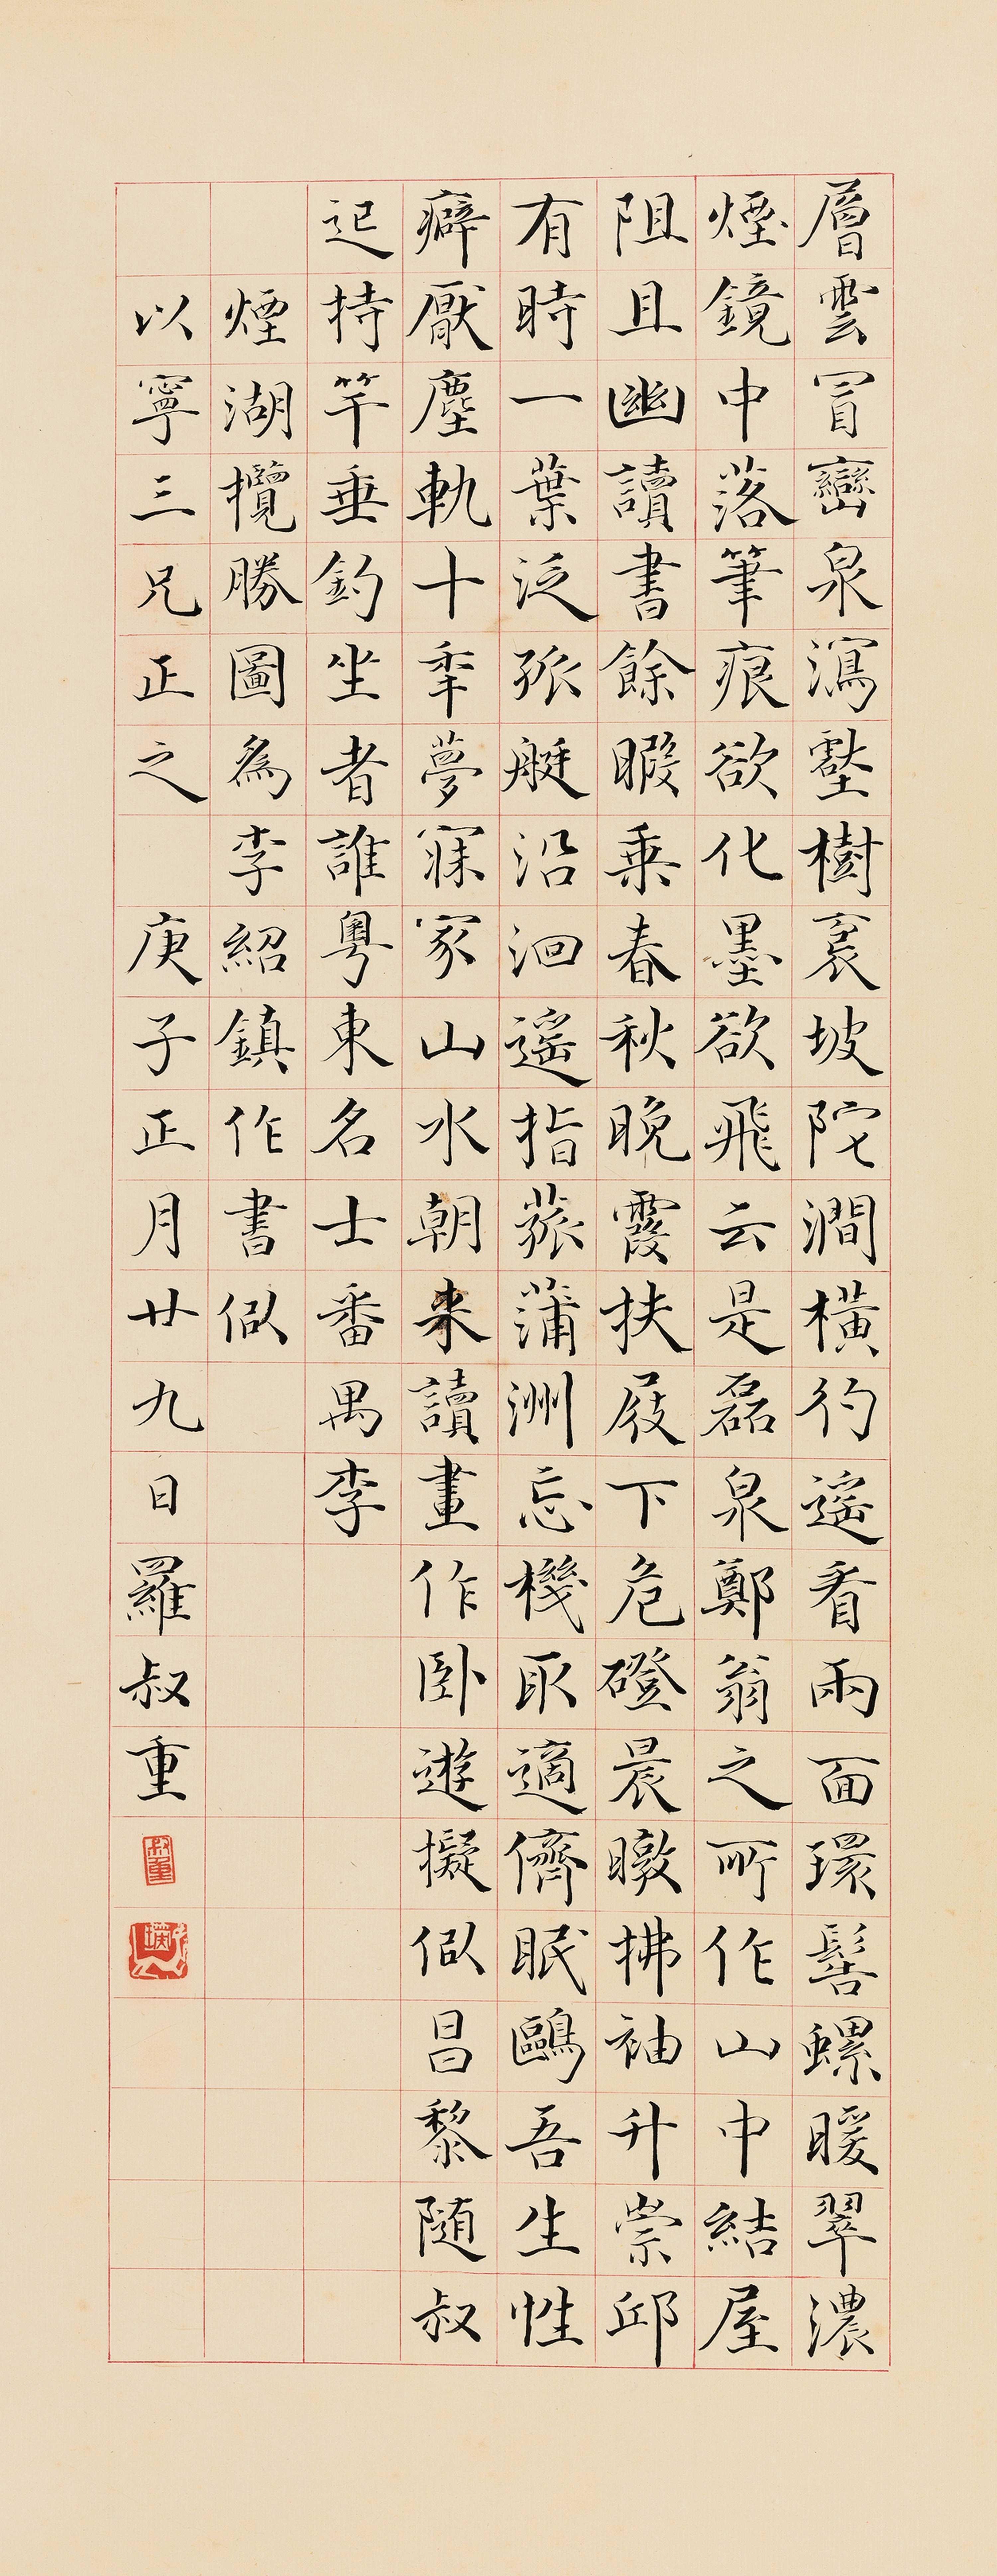 層雲冒巒泉瀉壑樹裹坡陀澗橫彴遥看兩面環髻螺暖翠濃
煙鏡中落筆痕欲化墨欲飛云是磊泉鄭翁之所作山中結屋
阻且幽讀書餘暇乗春秋晚霞扶屐下危磴晨暾拂袖升崇邱
有時一葉泛孤艇沿洄遥指菰蒲洲忘機取適儕眠鷗吾生性
癖厭塵軌十年夢寐家山水朝来讀畫作卧遊擬似昌黎随叔
起持竿垂釣坐者誰粵東名士番禺李
煙湖攬勝圖為李紹鎮作書似
以寧三兄正之 庚子正月廿九日羅叔重
叔重